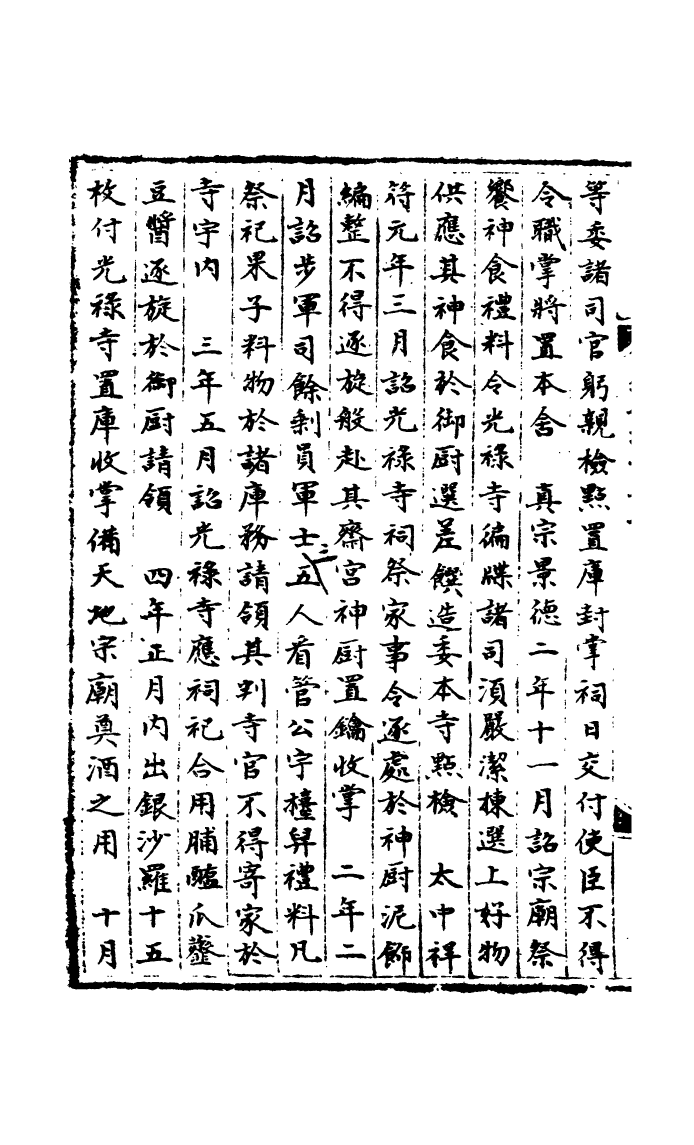 等委諸司官躬親檢㸃置庫封掌祠日交付使臣不得
令職掌將置本舍　真宗景德二年十一月詔宗廟祭
饗神食禮料令光禄寺徧牒諸司湏嚴潔揀選上好物
供應其神食於御厨選差饌造委本寺㸃檢　太中祥
符元年三月詔光禄寺祠祭家事令逐處於神厨泥飾
編整不得逐旋般赴其齋宮神厨置鑰收掌　二年二
月詔步軍司餘剩員軍士五三人看管公宇檯舁禮料凡
祭祀果子料物於諸庫務請領其判寺官不得寄家於
寺宇内　三年五月詔光禄寺應祠祀合用脯醢瓜虀
豆醬逐旋於御厨請領　四年正月内出銀沙羅十五
枚付光禄寺置庫收掌備天地宗廟奠酒之用　十月